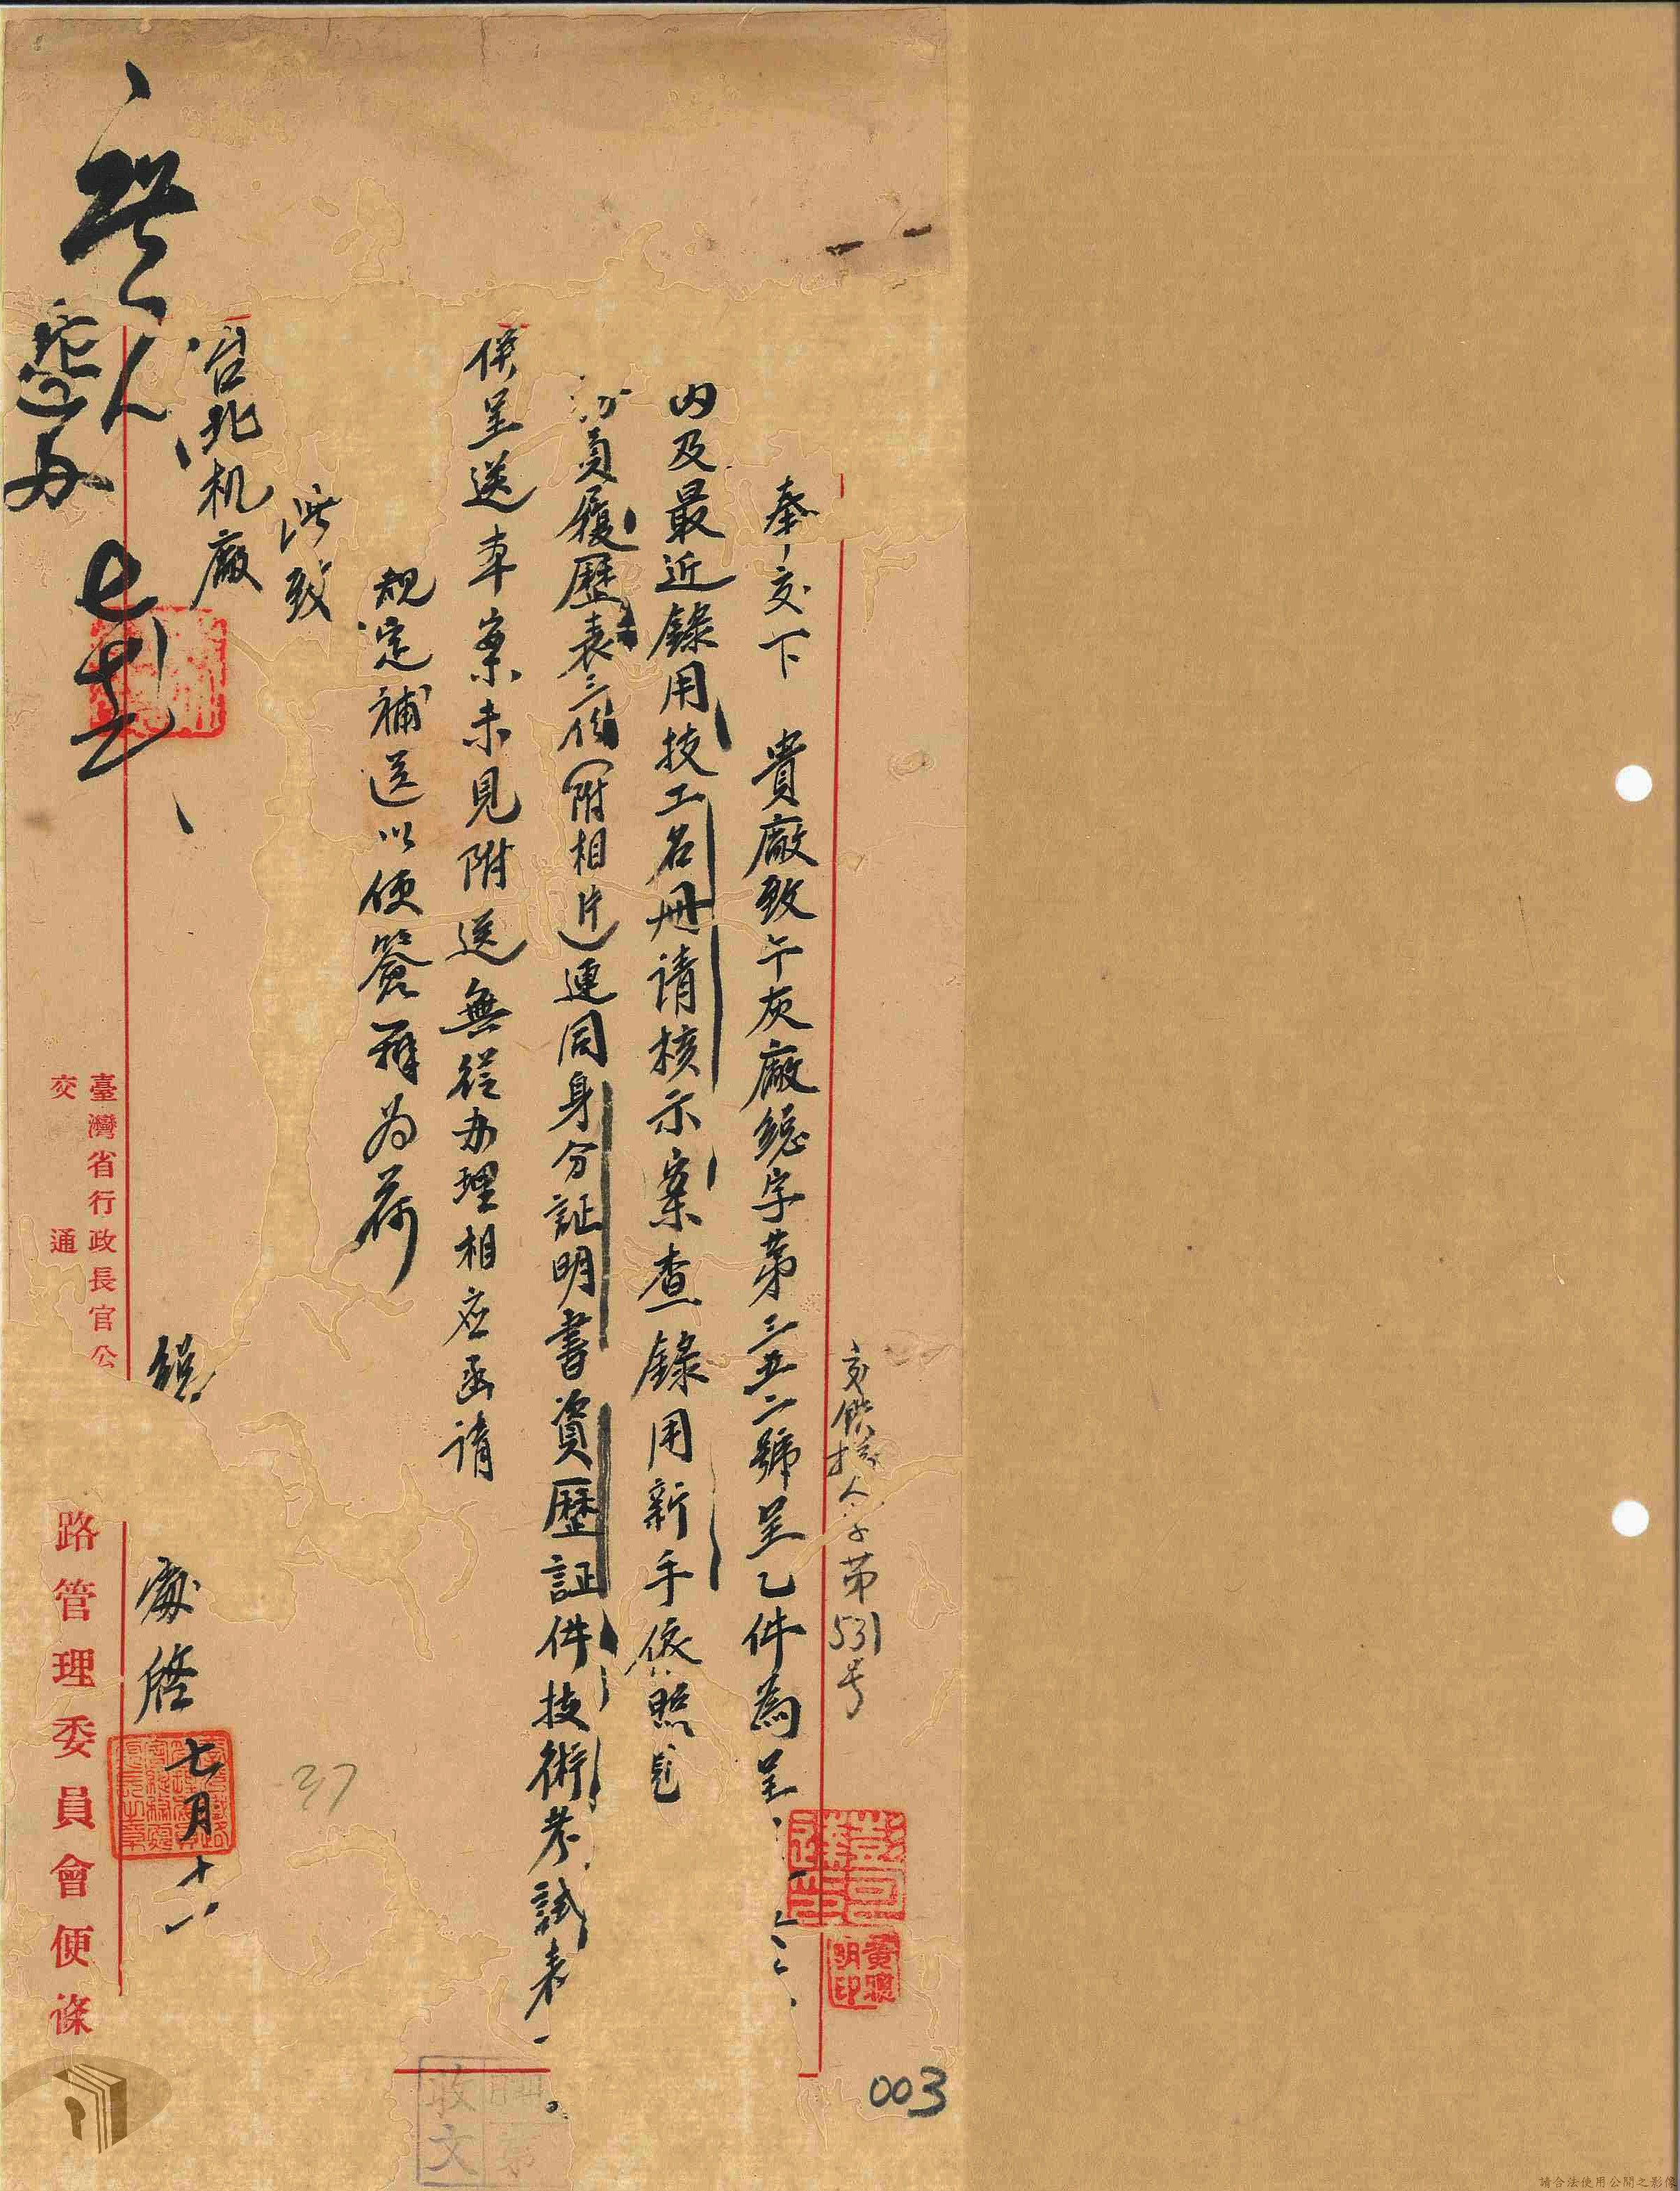 交鉄接人字第531号
奉交下 貴廠致午灰廠總字第三五二號呈乙件為呈
內及最近錄用技工名冊請核示案查錄用新手依照
員履歷表三份(附相片)連同身分証明書資歷証件技術考試表
併呈送本案未見附送無從办理相应函請
規定補送以便簽辦为荷
此致
台北机廠
總 處啓 七月十一
人
七 十二
臺灣省行政長官公
交 通
路管理委員會便條
37
收文
003
請合法使用公開之影像